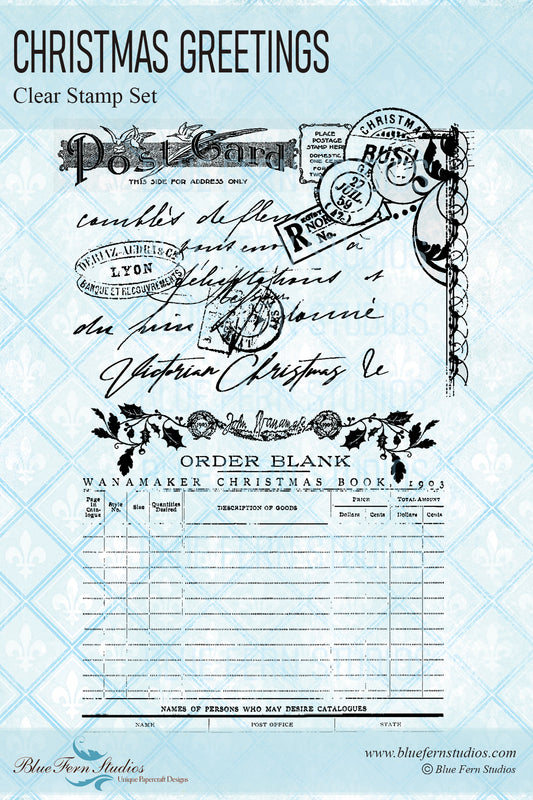 CHRISTMAS GREETINGS
Clear Stamp Set
Post Card
THIS SIDE FOR ADDRESS ONLY
PLACE
POSTAGE
STAMP HERE
DOMESTIC
ONE CENT
CHRISTMAS
RUSH
27
JUIL
59
R
No.
comblés de fleurs
vous en à
DERIAZ-AUDRA & Cie
LYON
BANQUE ET RECOUVREMENTS
félicitations et
du donné
Victorian Christmas
John Wanamaker
ORDER BLANK
WANAMAKER CHRISTMAS BOOK, 1903
Page in Cata-logue
Style No.
Size
Quantities Desired
DESCRIPTION OF GOODS
PRICE
Dollars
Cents
TOTAL AMOUNT
Dollars
Cents
NAMES OF PERSONS WHO MAY DESIRE CATALOGUES
NAME
POST OFFICE
STATE
Blue Fern Studios
Unique Papercraft Designs
www.bluefernstudios.com
© Blue Fern Studios